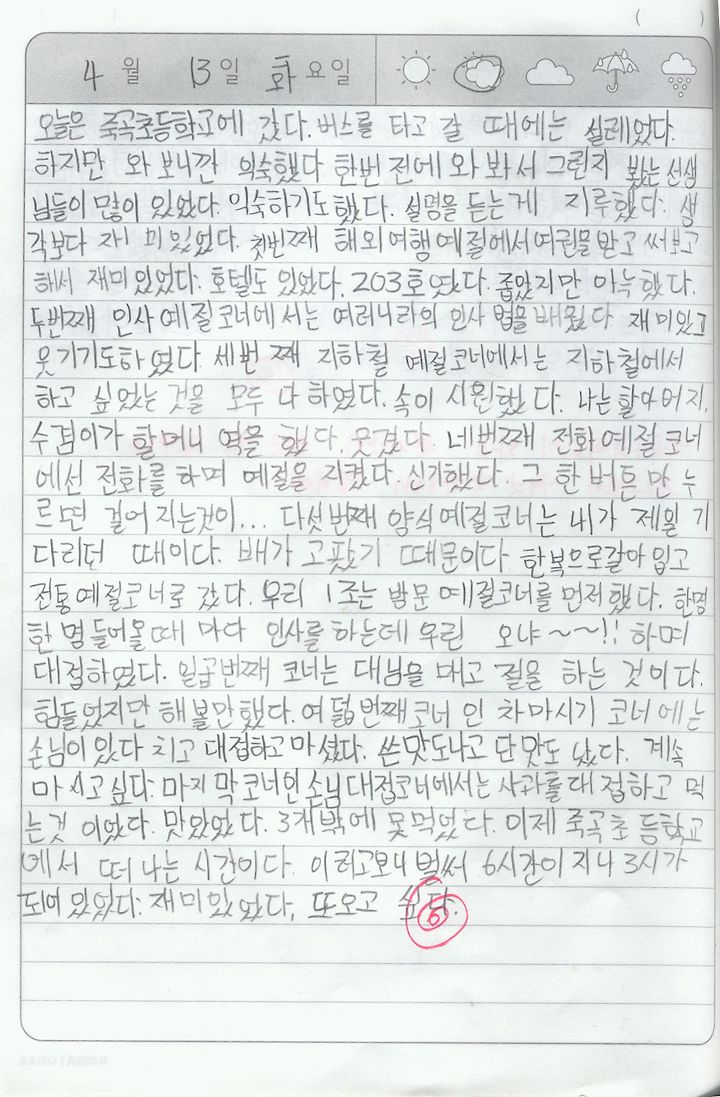 ( )
4월 13일 화요일
오늘은 죽곡초등학교에 갔다. 버스를 타고 갈 때에는 설레었다.
하지만 와 보니깐 익숙했다. 한번 전에 와 봐서 그런지 봤는 선생
님들이 많이 있었다. 익숙하기도 했다. 설명을 듣는게 지루했다. 생
각보다 재미있었다. 첫번째 해외여행예절에서 여권을 받고 써보고
해서 재미있었다. 호텔도 있었다. 203호였다. 좁았지만 아늑했다.
두번째 인사예절코너에서는 여러나라의 인사법을 배웠다. 재미있고
웃기기도하였다 세번째 지하철 예절코너에서는 지하철에서
하고 싶었는 것을 모두 다 하였다. 속이 시원했다. 나는 할아버지,
수겸이가 할머니 역을 했다. 웃겼다. 네번째 전화예절 코너
에선 전화를 하며 예절을 지켰다. 신기했다. 그 한 버튼만 누
르면 걸어지는것이... 다섯번째 양식예절코너는 내가 제일 기
다리던 때이다. 배가 고팠기 때문이다 한복으로갈아입고
전통예절코너로 갔다. 우리 1조는 방문예절코너를 먼저했다. 한명
한명들어올때 마다 인사를 하는데 우린 오냐~~!! 하며
대접하였다. 일곱번째 코너는 대님을 매고 절을 하는 것이다.
힘들었지만 해볼만했다. 여덟번째코너인 차마시기 코너에는
손님이있다 치고 대접하고 마셨다. 쓴맛도나고 단맛도 났다. 계속
마시고 싶다. 마지막코너인 손님대접코너에서는 사과를대접하고 먹
는것 이었다. 맛있었다. 3개밖에 못먹었다. 이제 죽곡초등학교
에서 떠나는 시간이다. 이러고보니 벌써 6시간이 지나 3시가
되어있었다. 재미있었다, 또오고 싶다.
6